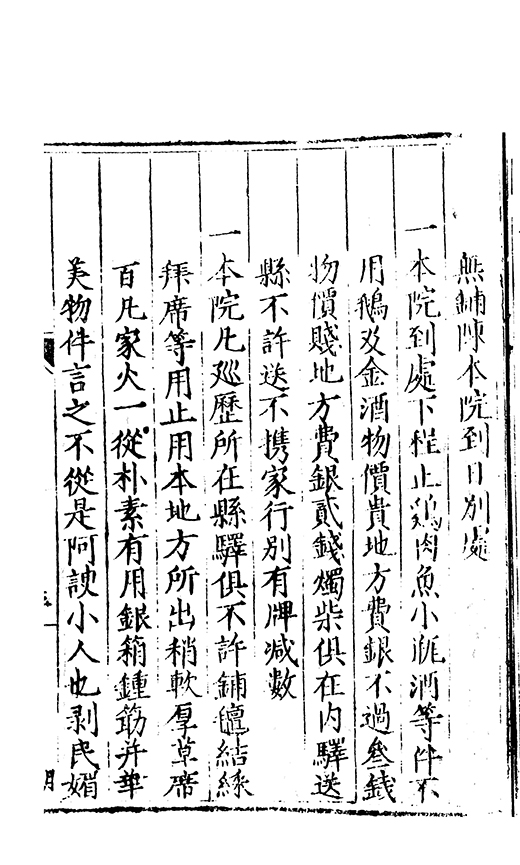 無鋪陳本院到日別處
一本院到處下程止鷄肉魚小瓶酒等件不
用鵝及金酒物價貴地方費銀不過叁錢
物價賤地方費銀貳錢燭柴俱在内驛送
縣不許送不携家行别有牌减數
一本院凡廵歷所在縣驛俱不許鋪氊結綵
拜席等用止用本地方所出稍軟厚草席
百凡家火一從朴素有用銀箱鍾筯并華
美物件言之不從是阿諛小人也剥民媚